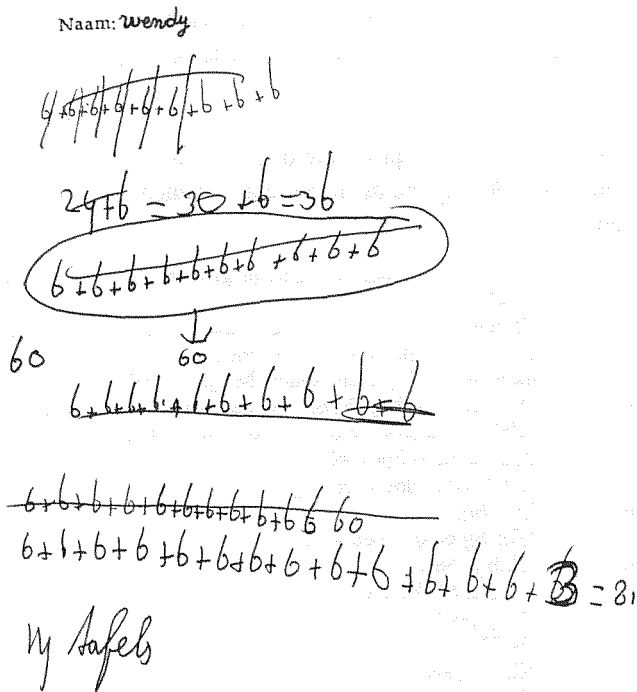 Naam: Wendy
6+6+6+6+6+6+6+6+6
24+6=30+6=36
6+6+6+6+6+6+6+6+6+6
60
60
6+6+6+6+6+6+6+6+6+6
6+6+6+6+6+6+6+6+6+6 6 60
6+6+6+6+6+6+6+6+6+6+6+6+6+3=81
tafels